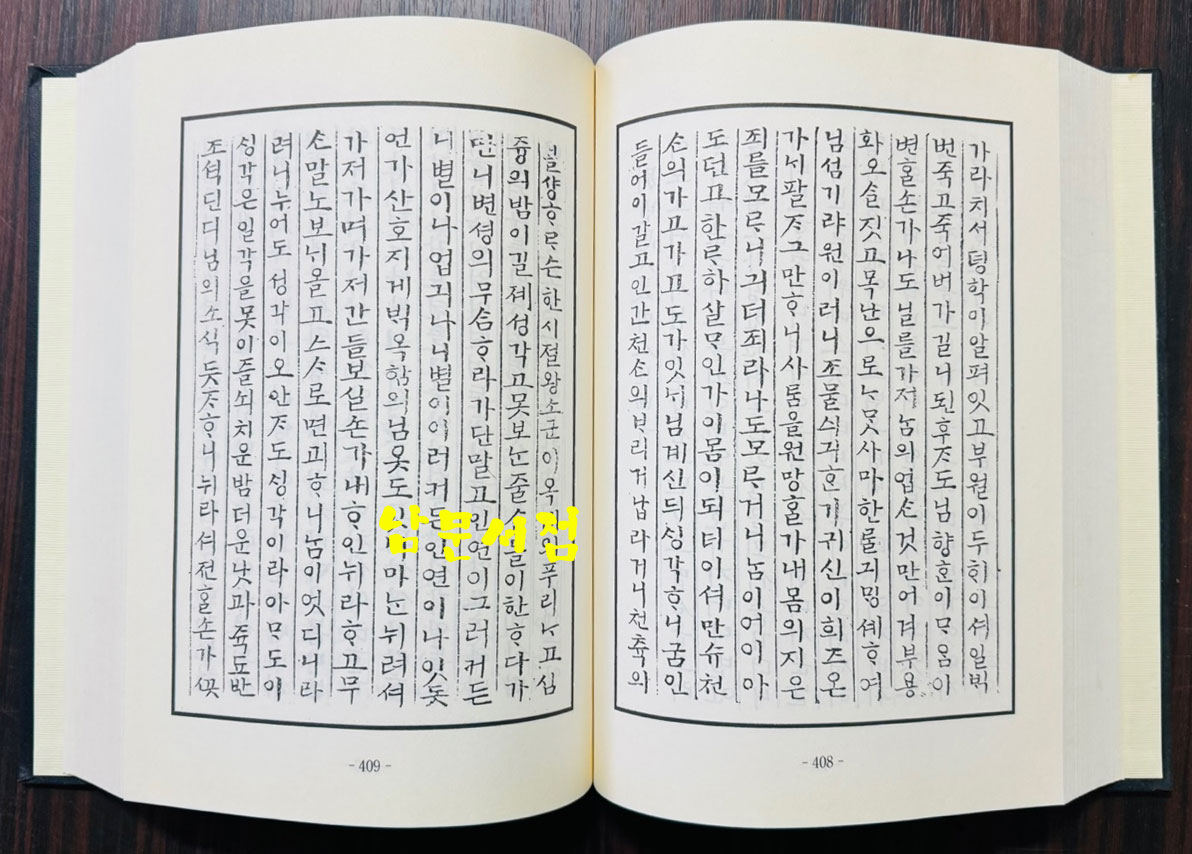 가라치서텅학이알펴잇고부월이두희이셔일빅
번죽고죽어버가길ᄂᆡ된후ᄌᆞ도님향ᄒᆞᆫ이ᄆᆞ음이
변ᄒᆞᆯ손가나도닐를가저ᄂᆞᆷ의업손것만어겨부용
화오슬짓고목난으로ᄂᆞᄆᆞᆺ사마한ᄅᆞᆯ긔밍셰ᄒᆞ여
님셤기랴원이러니조물싀긔ᄒᆞᆫ기귀신이희즈온
가셔팔ᄌᆞ그만ᄒᆞ니사ᄅᆞᆷ을원망ᄒᆞᆯ가내몸의지은
죄를모ᄅᆞ니긔더죄라나도모ᄅᆞ거니ᄂᆞᆷ이어이아
도던고한ᄅᆞ하살ᄆᆞ인가이몸이되터이셔만슈천
손의가고가고도가잇셔님계신듸싱각ᄒᆞ니굼인
들어이갈고인간천손의부리거납라거니천츅의
블샹ᄒᆞᄅᆞ슨한시절왕소군이옥 푸리ᄂᆞ고심
즁의밤이길졔성각고못보ᄂᆞᆫ줄 이한ᄒᆞ다가
단니변셩의무슴ᄒᆞ라가단말고인연이그러커든
니별이나업긔나니별이이러커든인연이나잇돗
언가산호지게빅옥함의님옷도 마ᄂᆞᆫ뉘려셔
가저가며가저간들보실손가내ᄒᆞ인뉘라ᄒᆞ고무
손말노보니올고스ᄉᆞ로면괴ᄒᆞ니ᄂᆞᆷ이엇디니라
려니누어도성각이오안ᄌᆞ도싱각이라아ᄆᆞ도이
싱각은일각을못이즐쇠치운밤더운낫과쥭됴반
조셕딘디님의소식돗ᄌᆞᄒᆞ니뉘라셔젼ᄒᆞᆯ손가
삼문서점
- 409 -
- 408 -